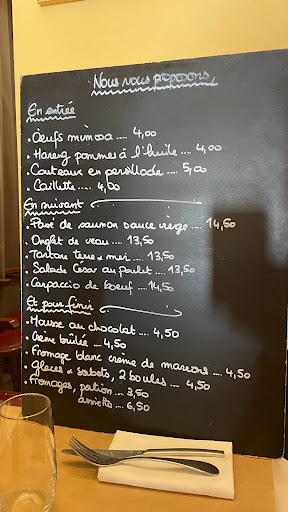 Nous vous proposons,
En entrée
. Oeufs mimosa .... 4,00
. Hareng pommes à l'huile .... 4,00
. Couteaux en persillade .... 5,00
. Caillette .... 4,00
En suivant
. Pavé de saumon sauce vierge .... 14,50
. Onglet de veau .... 13,50
. Tartare terre & mer .... 13,50
. Salade César au poulet .... 13,50
. Carpaccio de boeuf .... 14,50
Et pour finir
. Mousse au chocolat .... 4,50
. Crème brûlée .... 4,50
. Fromage blanc crème de marrons .... 4,50
. glaces & sorbets, 2 boules .... 4,50
. Fromages, portion .... 3,50
assiette .... 6,50